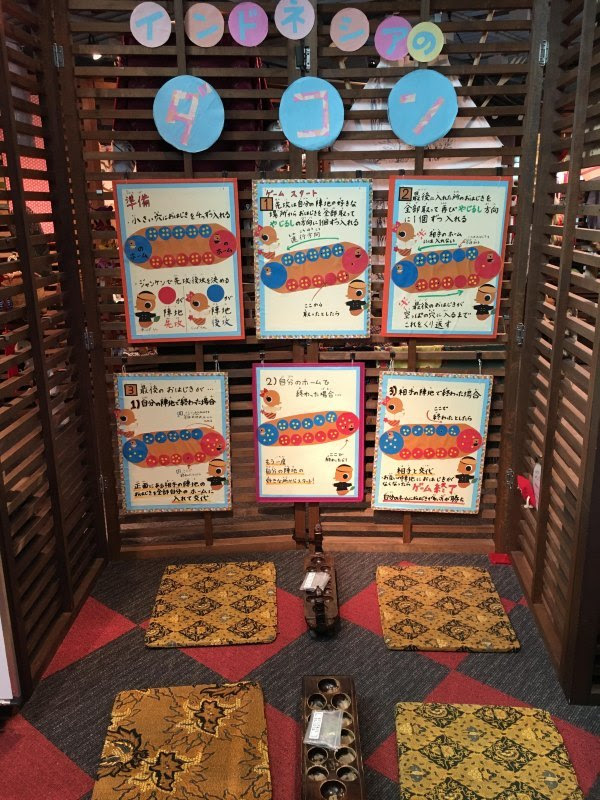 インドネシアの
ダコン
準備
小さい穴におはじきを4つずつ入れる
のホーム
のホーム
・ジャンケンで先攻後攻を決める
が陣地 先攻
が陣地 後攻
ゲームスタート
1 先攻は自分の陣地の好きな
場所からおはじきを全部取って
やじるし方向に1個ずつ入れる
進行方向
ここから
取ったとしたら
2 最後に入れた所のおはじきを
全部取って再びやじるし方向
に1個ずつ入れる
相手のホーム
には入れない
最後のおはじきが
空っぽの穴に入るまで
これをくり返す
3 最後のおはじきが…
1)自分の陣地で終わった場合
正面にある相手の陣地の
おはじきを全部自分のホームに
入れて交代
2)自分のホームで
終わった場合…
ここで
終わったら
もう一度
自分の陣地の
好きな所からスタート!
3)相手の陣地で終わった場合
ここで
終わったとしたら
相手と交代
なくなったらゲーム終了